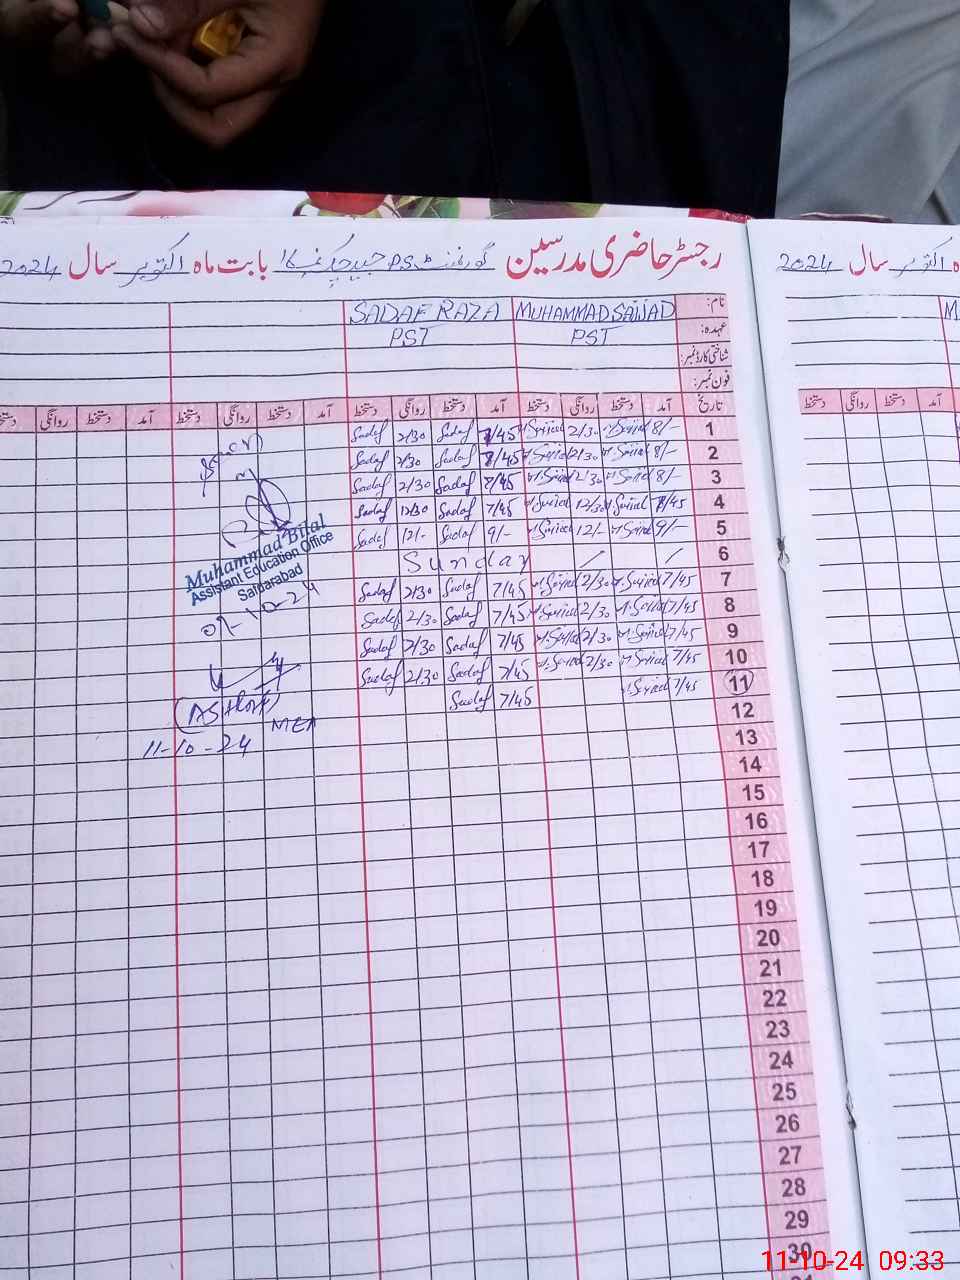 رجسٹر حاضری مدرسین گورنمنٹ P.S بابت ماہ اکتوبر سال 2024
نام: MUHAMMAD SAJJAD SADAF RAZA
عہدہ: PST PST
شناختی کارڈ نمبر:
فون نمبر:
تاریخ آمد دستخط روانگی دستخط آمد دستخط روانگی دستخط آمد دستخط روانگی دستخط آمد دستخط روانگی دستخط
1 8/- 2/30 7/45 Sadaf 2/30 Sadaf
2 8/- 2/30 8/45 Sadaf 2/30 Sadaf
3 8/- 2/30 8/45 Sadaf 2/30 Sadaf
4 7/45 12/30 7/45 Sadaf 12/30 Sadaf
5 9/- 12/- 9/- Sadaf 12/- Sadaf
6 / / Sunday
7 7/45 2/30 7/45 Sadaf 2/30 Sadaf
8 7/45 2/30 7/45 Sadaf 2/30 Sadaf
9 7/45 2/30 7/45 Sadaf 2/30 Sadaf
10 7/45 2/30 7/45 Sadaf 2/30 Sadaf
11 7/45 7/45 Sadaf
12
13
14
15
16
17
18
19
20
21
22
23
24
25
26
27
28
29
30
Muhammad Bilal
Assistant Education Office
09-10-24
MEA
11-10-24
سال اکتوبر 2024
دستخط روانگی دستخط آمد
11-10-24 09:33